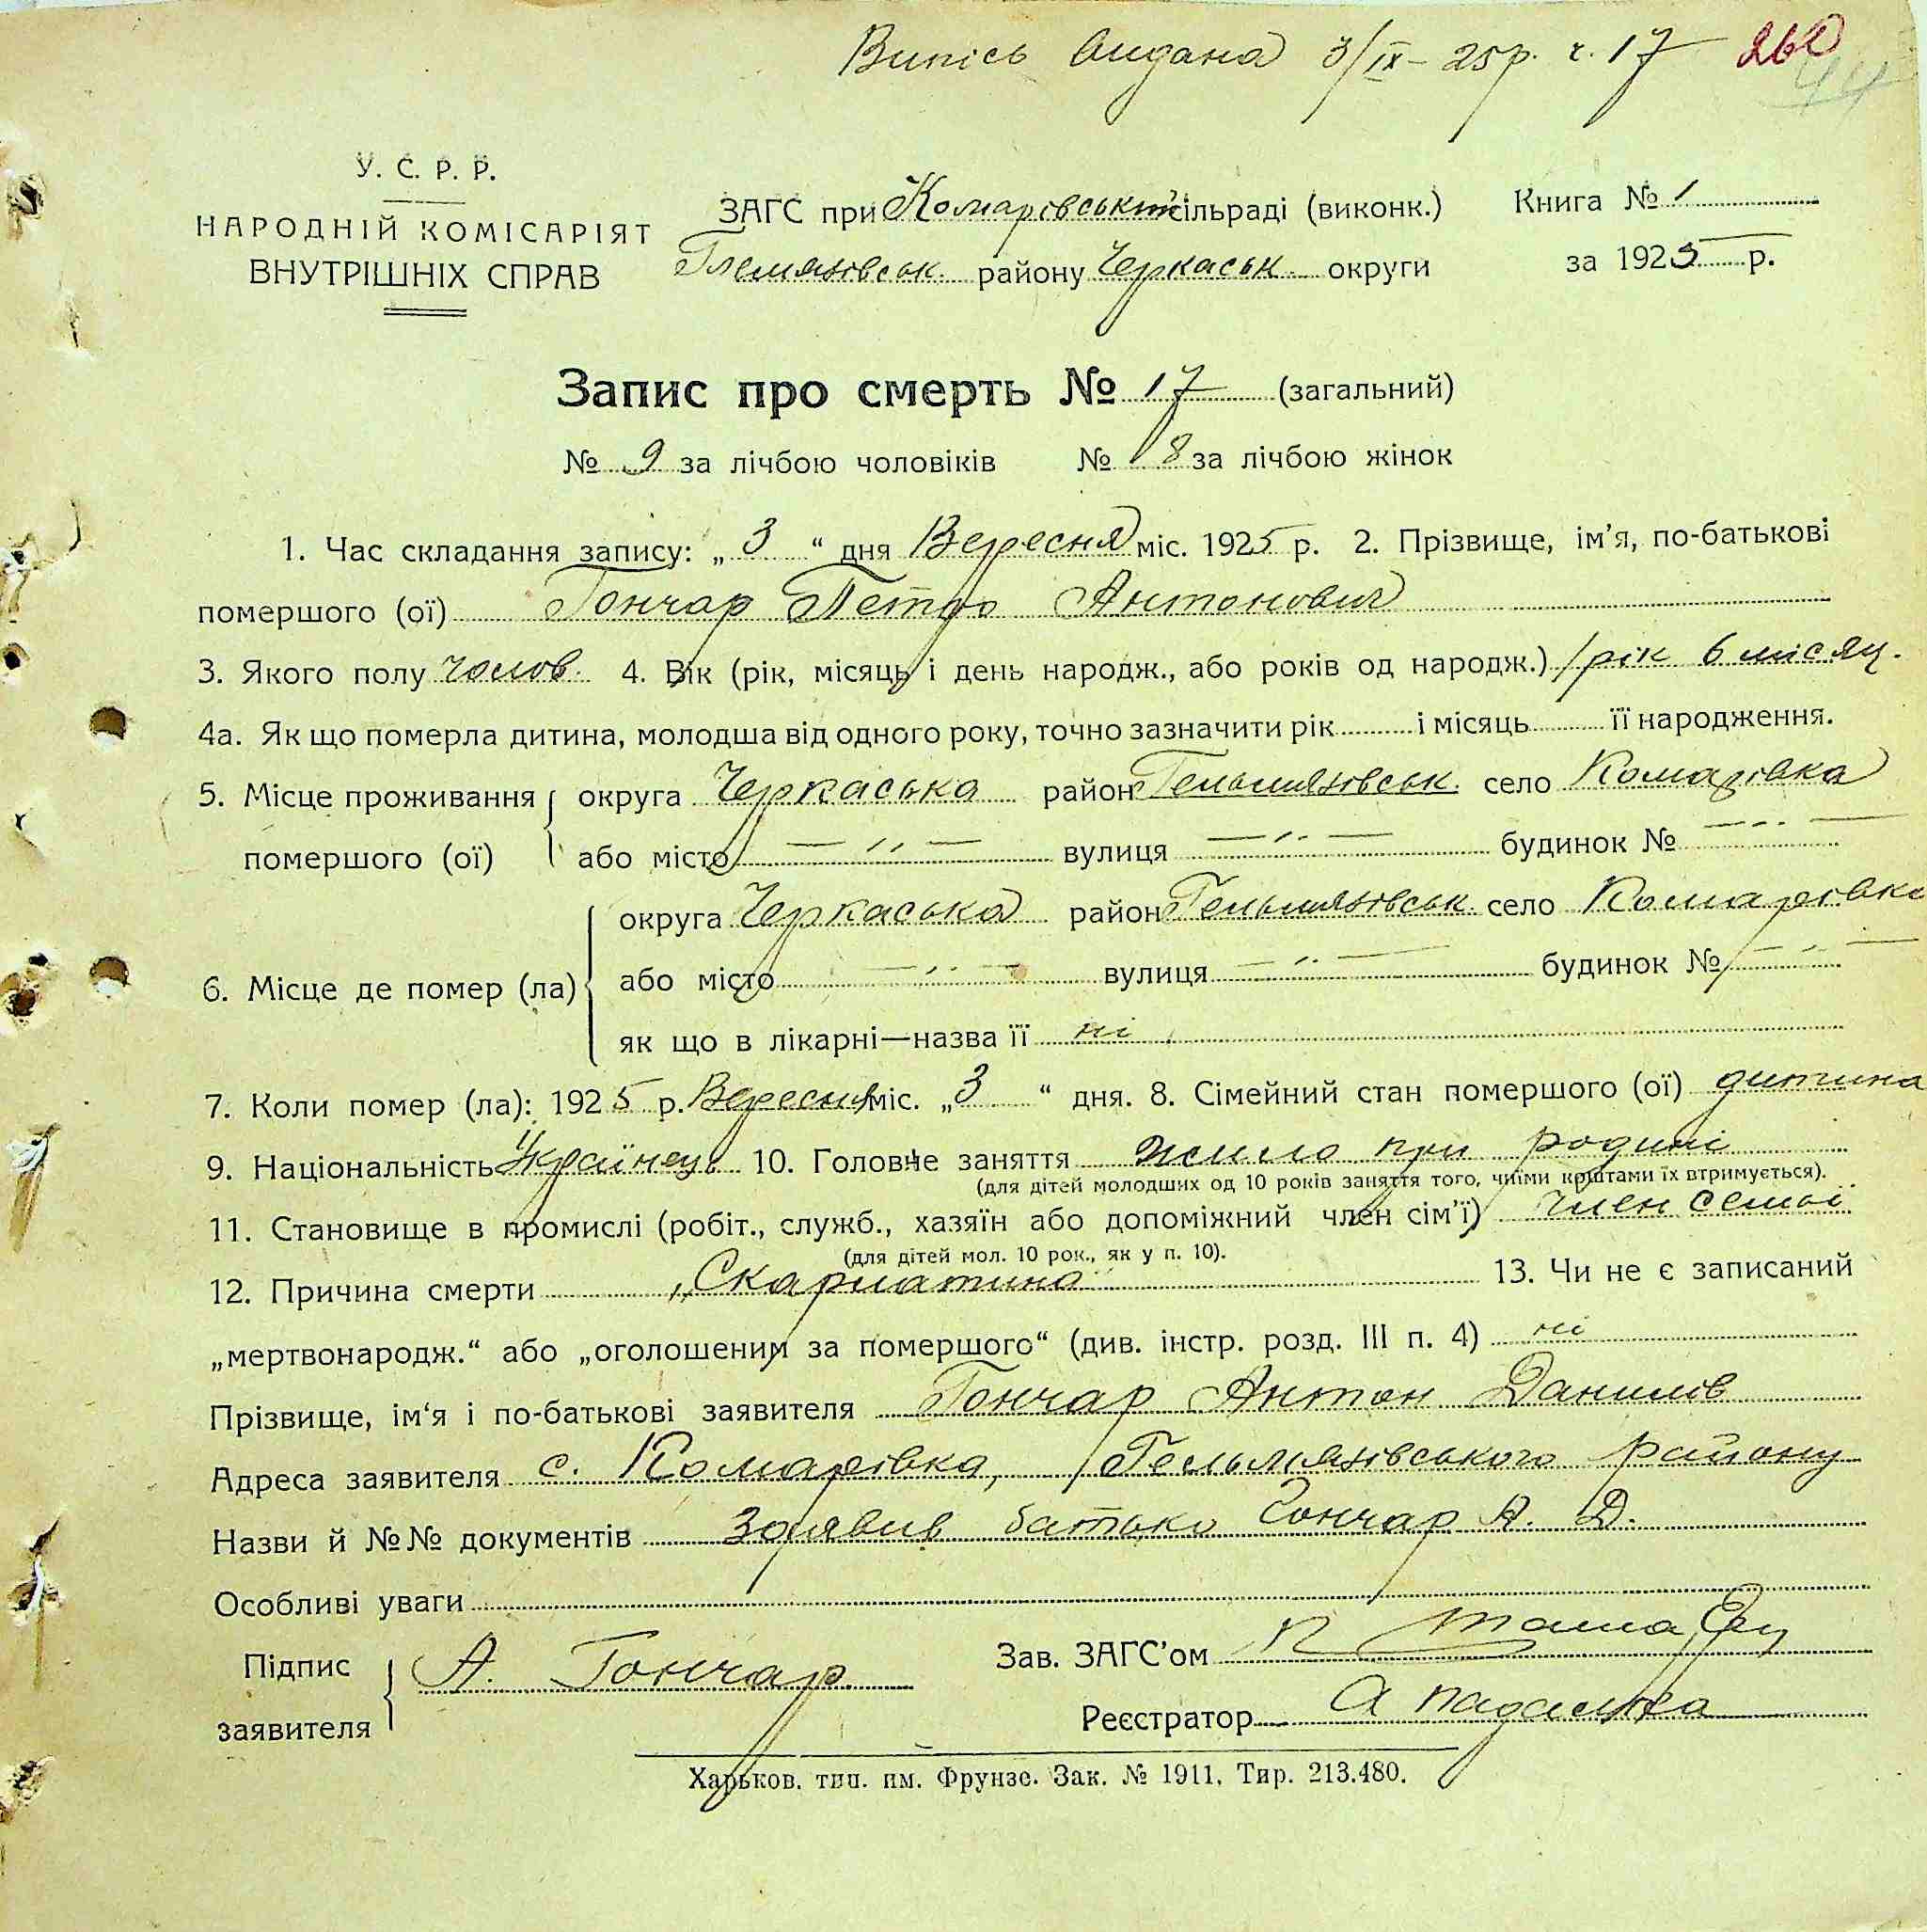 Випись видана 3/ІХ – 25 р. ч. 17
У. С. Р. Р.
НАРОДНІЙ КОМІСАРІЯТ
ВНУТРІШНІХ СПРАВ
ЗАГС при Комарівській сільраді (виконк.)
Гельмязівськ. району Черкаськ округи
Книга № 1
за 1925 р.
Запис про смерть № 17 (загальний)
№ 9 за лічбою чоловіків № 8 за лічбою жінок
1. Час складання запису: „ 3 “ дня Вересня міс. 1925 р. 2. Прізвище, ім'я, по-батькові
помершого (ої) Гончар Петро Антонович
3. Якого полу чолов. 4. Вік (рік, місяць і день народж., або років од народж.) 1 рік 6 місяц.
4а. Як що померла дитина, молодша від одного року, точно зазначити рік і місяць її народження.
5. Місце проживання помершого (ої) округа Черкаська район Гельмязівськ. село Комарівка
або місто — „ — вулиця — „ — будинок № — „ —
6. Місце де помер (ла) округа Черкаська район Гельмязівськ. село Комарівка
або місто — „ — вулиця — „ — будинок № — „ —
як що в лікарні—назва її ні
7. Коли помер (ла): 1925 р. Вересня міс. „ 3 “ дня. 8. Сімейний стан помершого (ої) дитина
9. Національність Українець 10. Головне заняття жило при родині
(для дітей молодших од 10 років заняття того, чиїми коштами їх втримується).
11. Становище в промислі (робіт., служб., хазяїн або допоміжний член сім'ї) член семьї
(для дітей мол. 10 рок., як у п. 10).
12. Причина смерти „Скарлатина“ 13. Чи не є записаний
„мертвонародж.“ або „оголошеним за помершого“ (див. інстр. розд. III п. 4) ні
Прізвище, ім'я і по-батькові заявителя Гончар Антон Данилів
Адреса заявителя с. Комарівка, Гельмязівського району
Назви й №№ документів Заявив батько Гончар А. Д.
Особливі уваги
Підпис заявителя А. Гончар
Зав. ЗАГС'ом
Реєстратор А Падалка
Харьков. тип. им. Фрунзе. Зак. № 1911. Тир. 213.480.